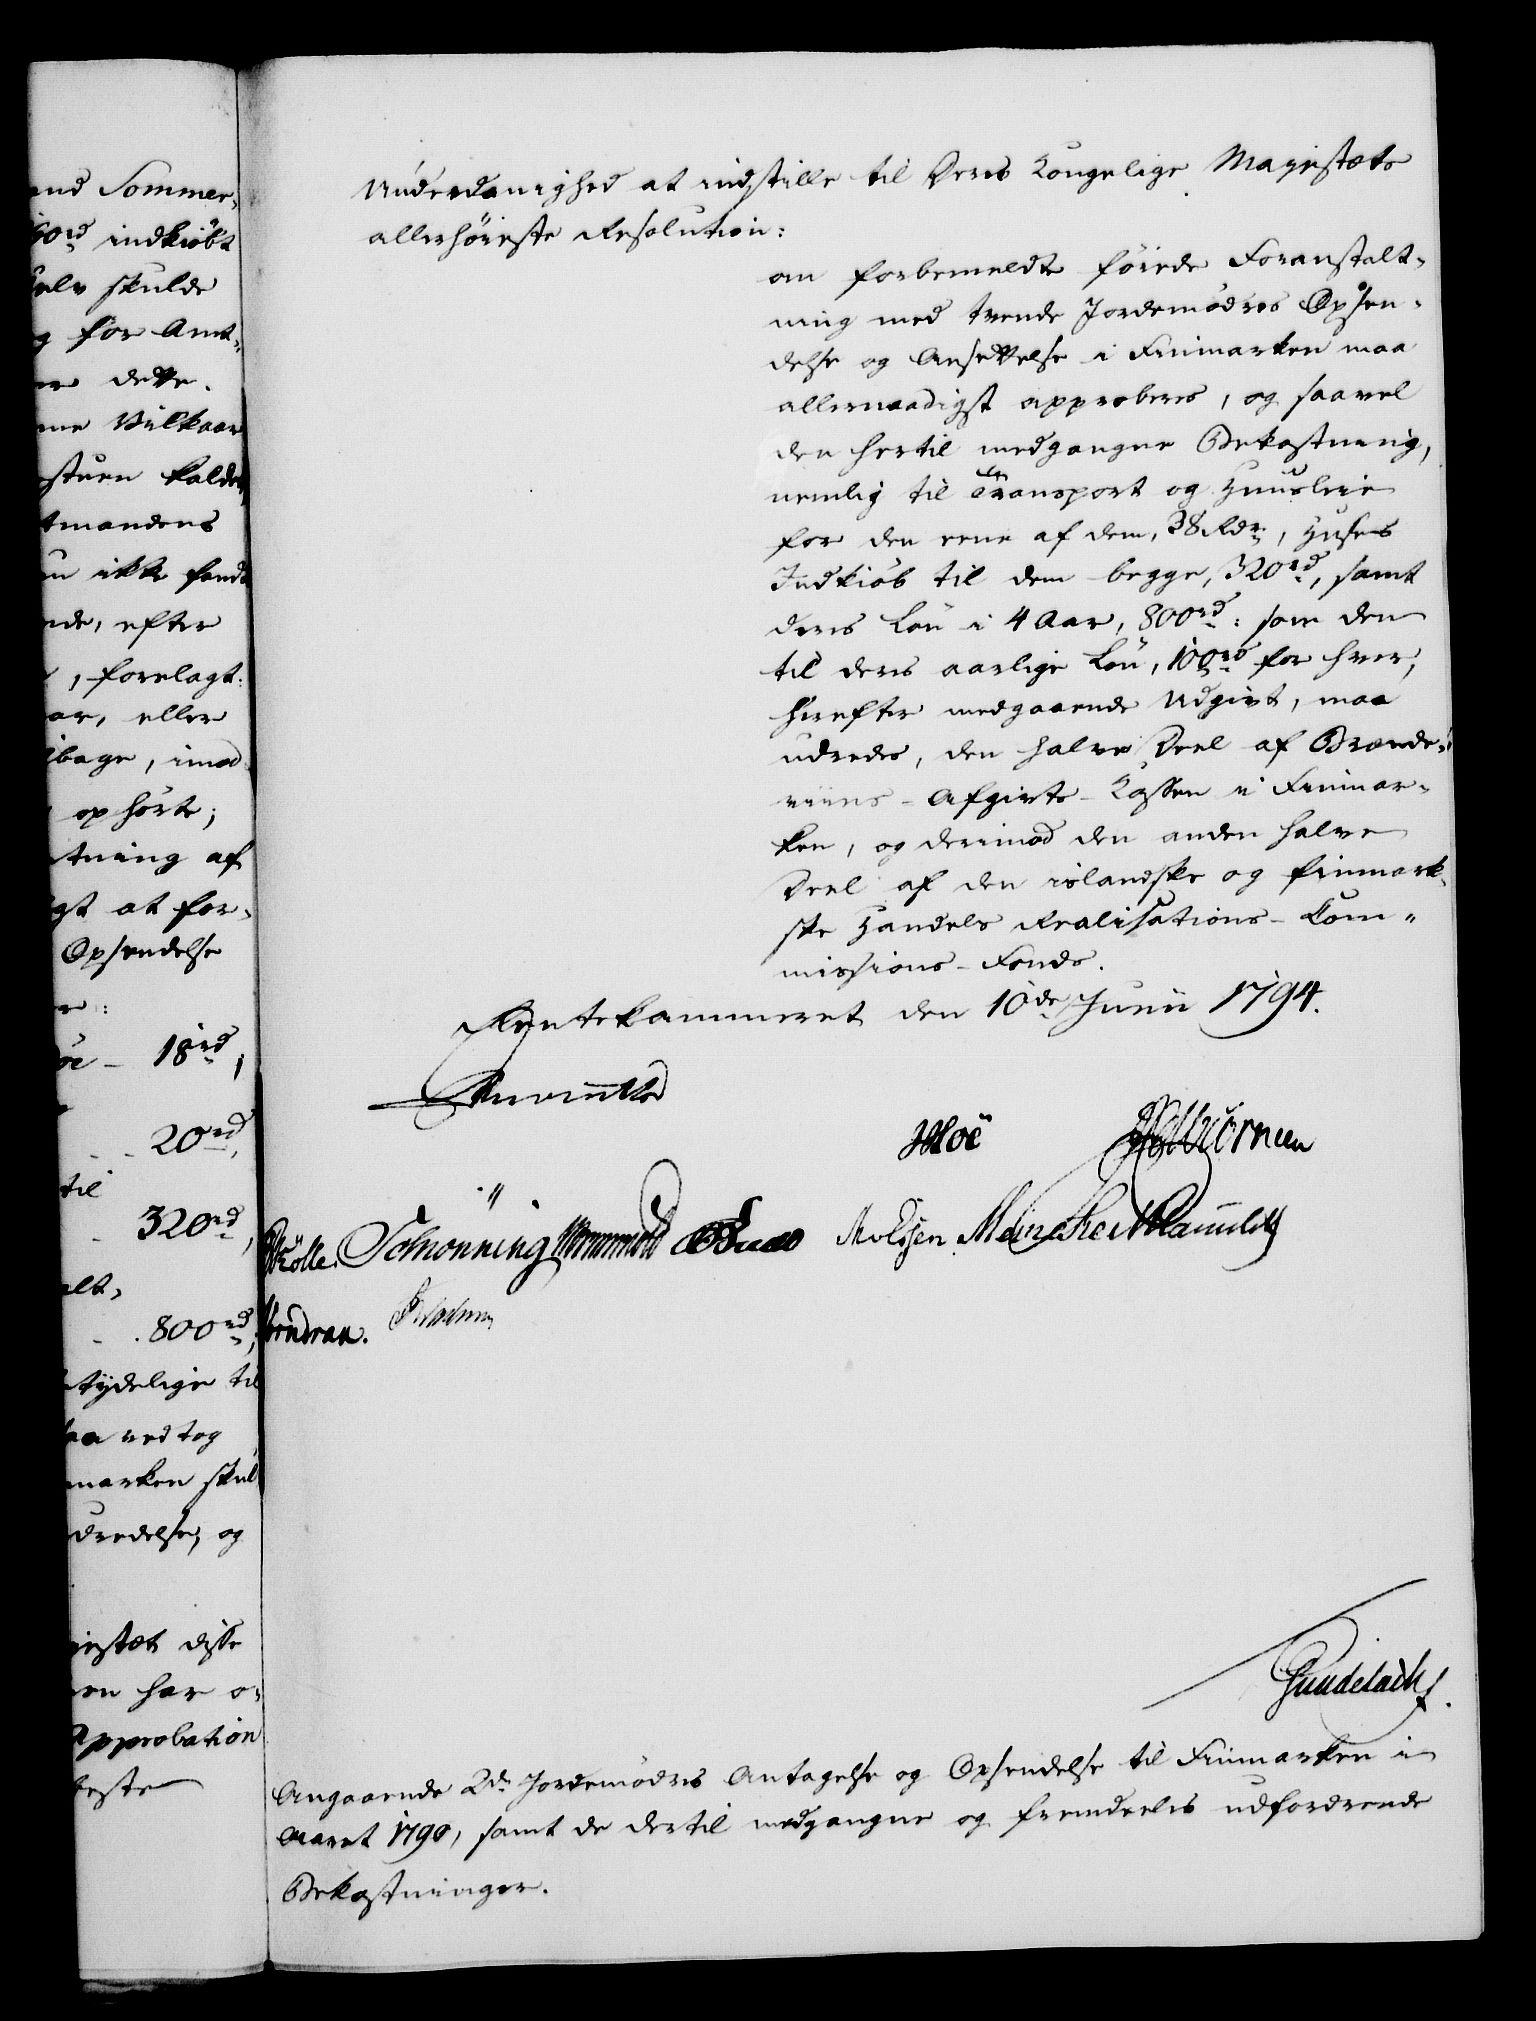 and Sommer-
60rd indkiøbt
selv skulde
g for Amt-
er dette.
me Vilkaar
stuen kaldet,
tmandens
en ikke fandt
nde, efter
, forelagt
ar, eller
bage, imod
ophørte;
tning af
gst at for-
Opsendelse
er:
øe - 18rd,
20rd,
til
320rd,
alt,
800rd,
tydelige til
aa vedtog
marken skul
dredelse, og
jestæt disse
en har o-
Approbation
este
Underdanighed at indstille til Deres Kongelige Majestæts
allerhøieste Resolution:
om forbemeldte føiede Foranstalt-
ning med tvende Jordemødres Opsen-
delse og Ansettelse i Finmarken maa
allernaadigst approberes, og saavel
den hertil medgangne Bekostning,
nemlig til Transport og Huusleie
for den eene af dem, 38 Rdr, Huses
Indkiøb til dem begge, 320rd, samt
deres Løn i 4 Aar, 800rd: som den
til deres aarlige Løn, 100rd for hver,
herefter medgaaende Udgivt, maa
udredes, den halve Deel af Brænde-
viins-Afgivts-Kassen i Finmar-
ken, og derimod den anden halve
Deel af den islandske og finmark-
ske Handels Realisations-Com-
missions-Fonds.
Rentekammeret den 10de Junii 1794.
Reventlow
Hoë
Wormskiold
Schønning
Meincke
Gundelach
Angaaende 2de Jordemødres Antagelse og Opsendelse til Finmarken i
Aaret 1790, samt de dertil medgangne og fremdeeles udfordrende
Bekostninger.